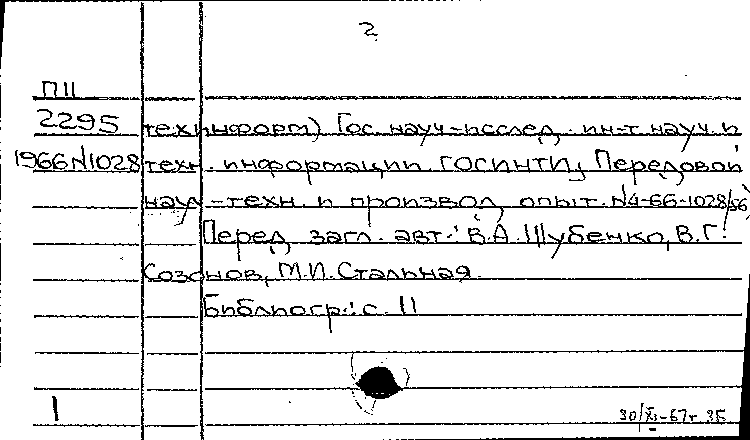 2
П11
2295 техинформ) Гос. науч-исслед. ин-т. науч. и
1966 N1028 техн. информации. ГОСИНТИ, Передовой
науч-техн. и произвол, опыт. N4-66-1028/56
Перед. загл. авт.: В.А. Шубенко, В.Г.
Созонов, М.И. Стальная.
Библиогр.: с. 11
1
30/XI-67г.